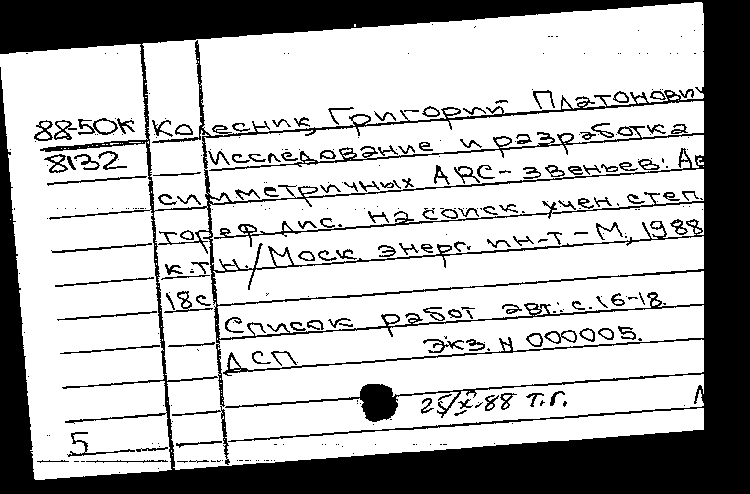 88-5ОК Колесник, Григорий Платонович
8132 Исследование и разработка
симметричных ARC-звеньев: Ав
тореф. дис. на соиск. учен. степ.
к.т.н./Моск. энерг. ин-т.-М., 1988
18с
Список работ авт.: с.16-18.
ДСП Экз. N 000005.
25/X-88 т.г.
5